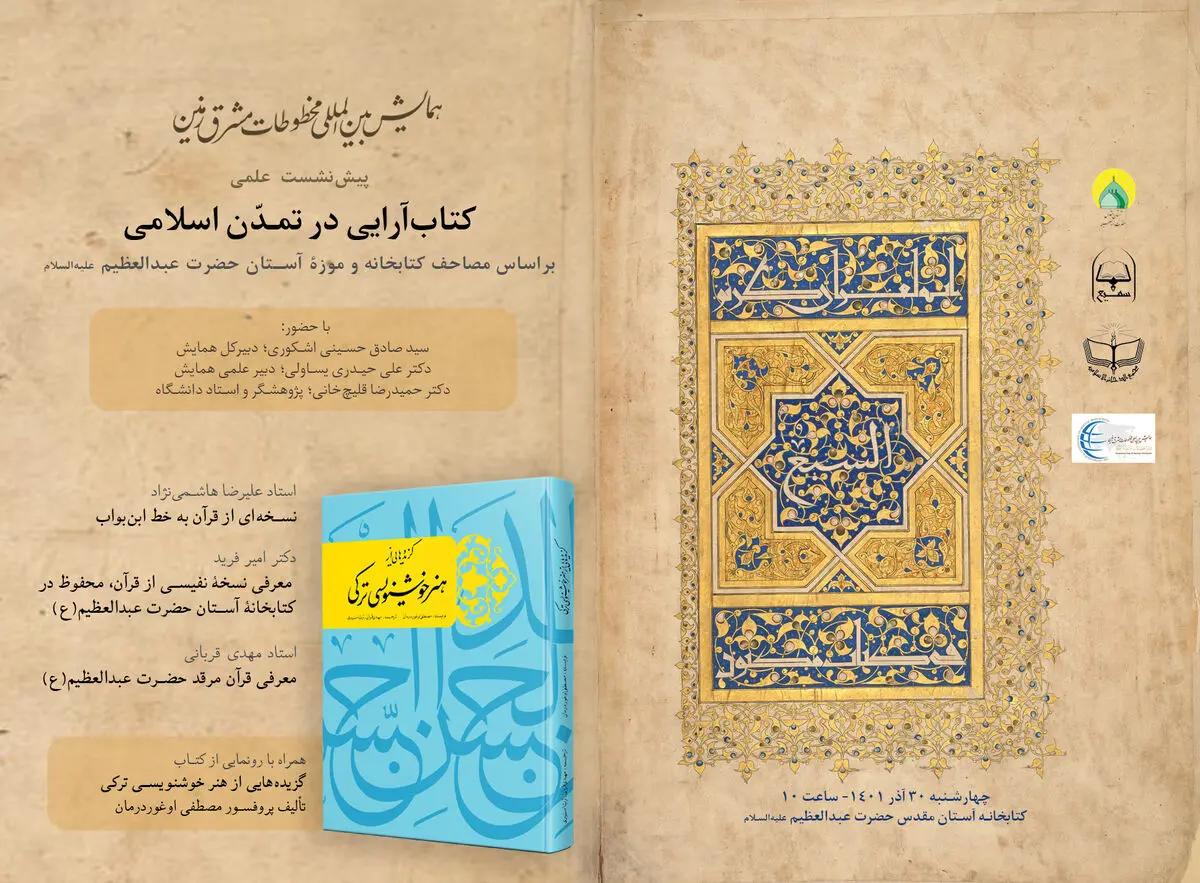 همایش بین‌المللی مخطوطات مشرق زمین
پیش‌نشست علمی
کتاب‌آرایی در تمدّن اسلامی
براساس مصاحف کتابخانه و موزهٔ آستان حضرت عبدالعظیم علیه‌السلام
با حضور:
سید صادق حسینی اشکوری؛ دبیرکل همایش
دکتر علی حیدری یساولی؛ دبیر علمی همایش
دکتر حمیدرضا قلیچ‌خانی؛ پژوهشگر و استاد دانشگاه
استاد علیرضا هاشمی‌نژاد
نسخه‌ای از قرآن به خط ابن‌بواب
دکتر امیر فرید
معرفی نسخهٔ نفیسی از قرآن، محفوظ در
کتابخانهٔ آستان حضرت عبدالعظیم(ع)
استاد مهدی قربانی
معرفی قرآن مرقد حضرت عبدالعظیم(ع)
همراه با رونمایی از کتاب
گزیده‌هایی از هنر خوشنویسی ترکی
تألیف پروفسور مصطفی اوغوردرمان
گزیده‌هایی از
هنر خوشنویسی ترکی
گزیده‌هایی از هنر خوشنویسی ترکی
السبع
سمیع
مجمع الذخائر الاسلامیه
چهارشنبه ۳۰ آذر ۱٤۰۱- ساعت ۱۰
کتابخانه آستان مقدس حضرت عبدالعظیم علیه‌السلام